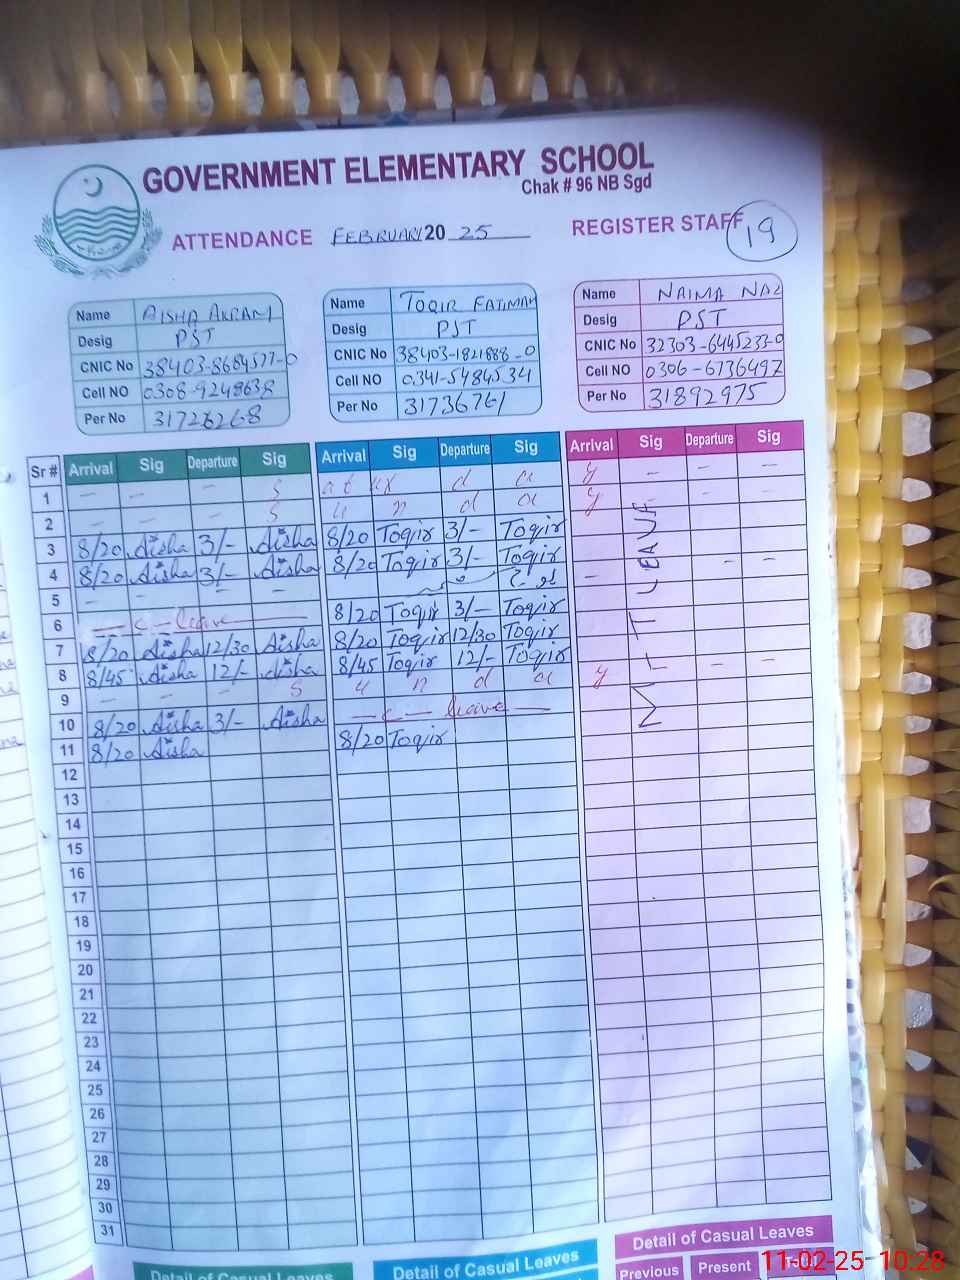 GOVERNMENT ELEMENTARY SCHOOL
Chak # 96 NB Sgd
ATTENDANCE FEBRUARY 2025 REGISTER STAFF 19
Name AISHA AKRAM
Desig PST
CNIC No 38403-8684577-0
Cell NO 0308-9248638
Per No 31726268
Name TOQIR FATIMAH
Desig PST
CNIC No 38403-1821888-0
Cell NO 0341-5484534
Per No 31736761
Name NAIMA NAZ
Desig PST
CNIC No 32303-6445233-0
Cell NO 0306-6736497
Per No 31892975
Sr # Arrival Sig Departure Sig Arrival Sig Departure Sig Arrival Sig Departure Sig
1 - - - S a t u r d a y - - -
2 - - - S u n d a y
3 8/20 Aisha 3/- Aisha 8/20 Toqir 3/- Toqir
4 8/20 Aisha 3/- Aisha 8/20 Toqir 3/- Toqir
5 - - - - - - -
6 - c - leave - 8/20 Toqir 3/- Toqir
7 8/20 Aisha 12/30 Aisha 8/20 Toqir 12/30 Toqir
8 8/45 Aisha 12/- Aisha 8/45 Toqir 12/- Toqir
9 - - - S u n d a y - -
10 8/20 Aisha 3/- Aisha - c - leave -
11 8/20 Aisha 8/20 Toqir
LEAVE
12
13
14
15
16
17
18
19
20
21
22
23
24
25
26
27
28
29
30
31
Detail of Casual Leaves
Detail of Casual Leaves
Detail of Casual Leaves
Previous Present Total
11-02-25 10:28